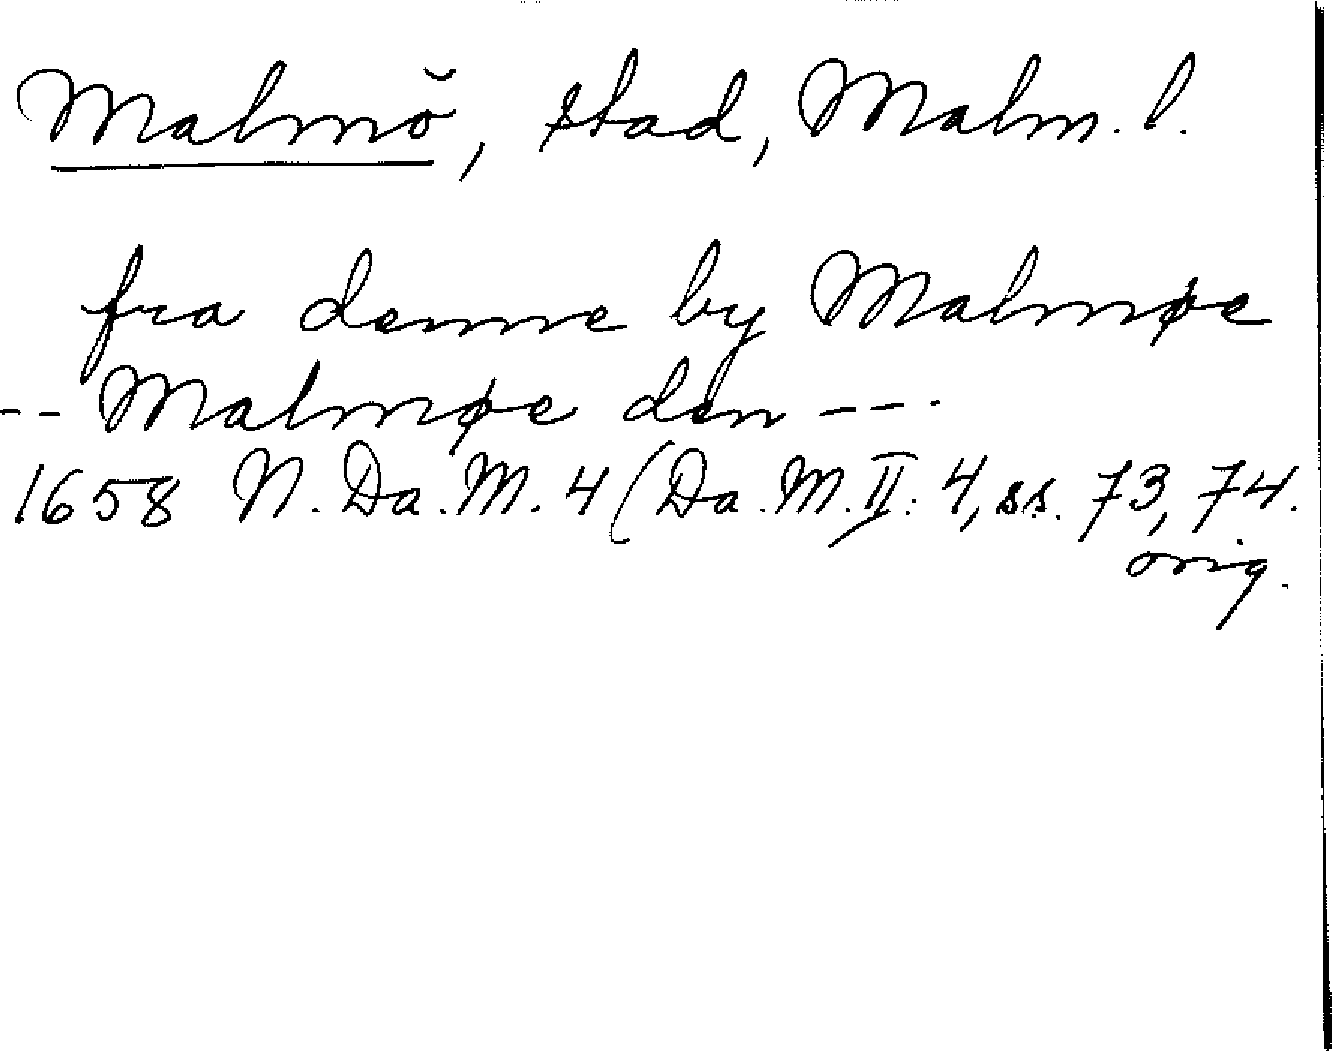 Malmö, stad, Malm. l.
fra denne by Malmøe
-- Malmøe den ---.
1658 N. Da. M. 4 (Da. M. II. 4, ss. 73, 74.
orig.